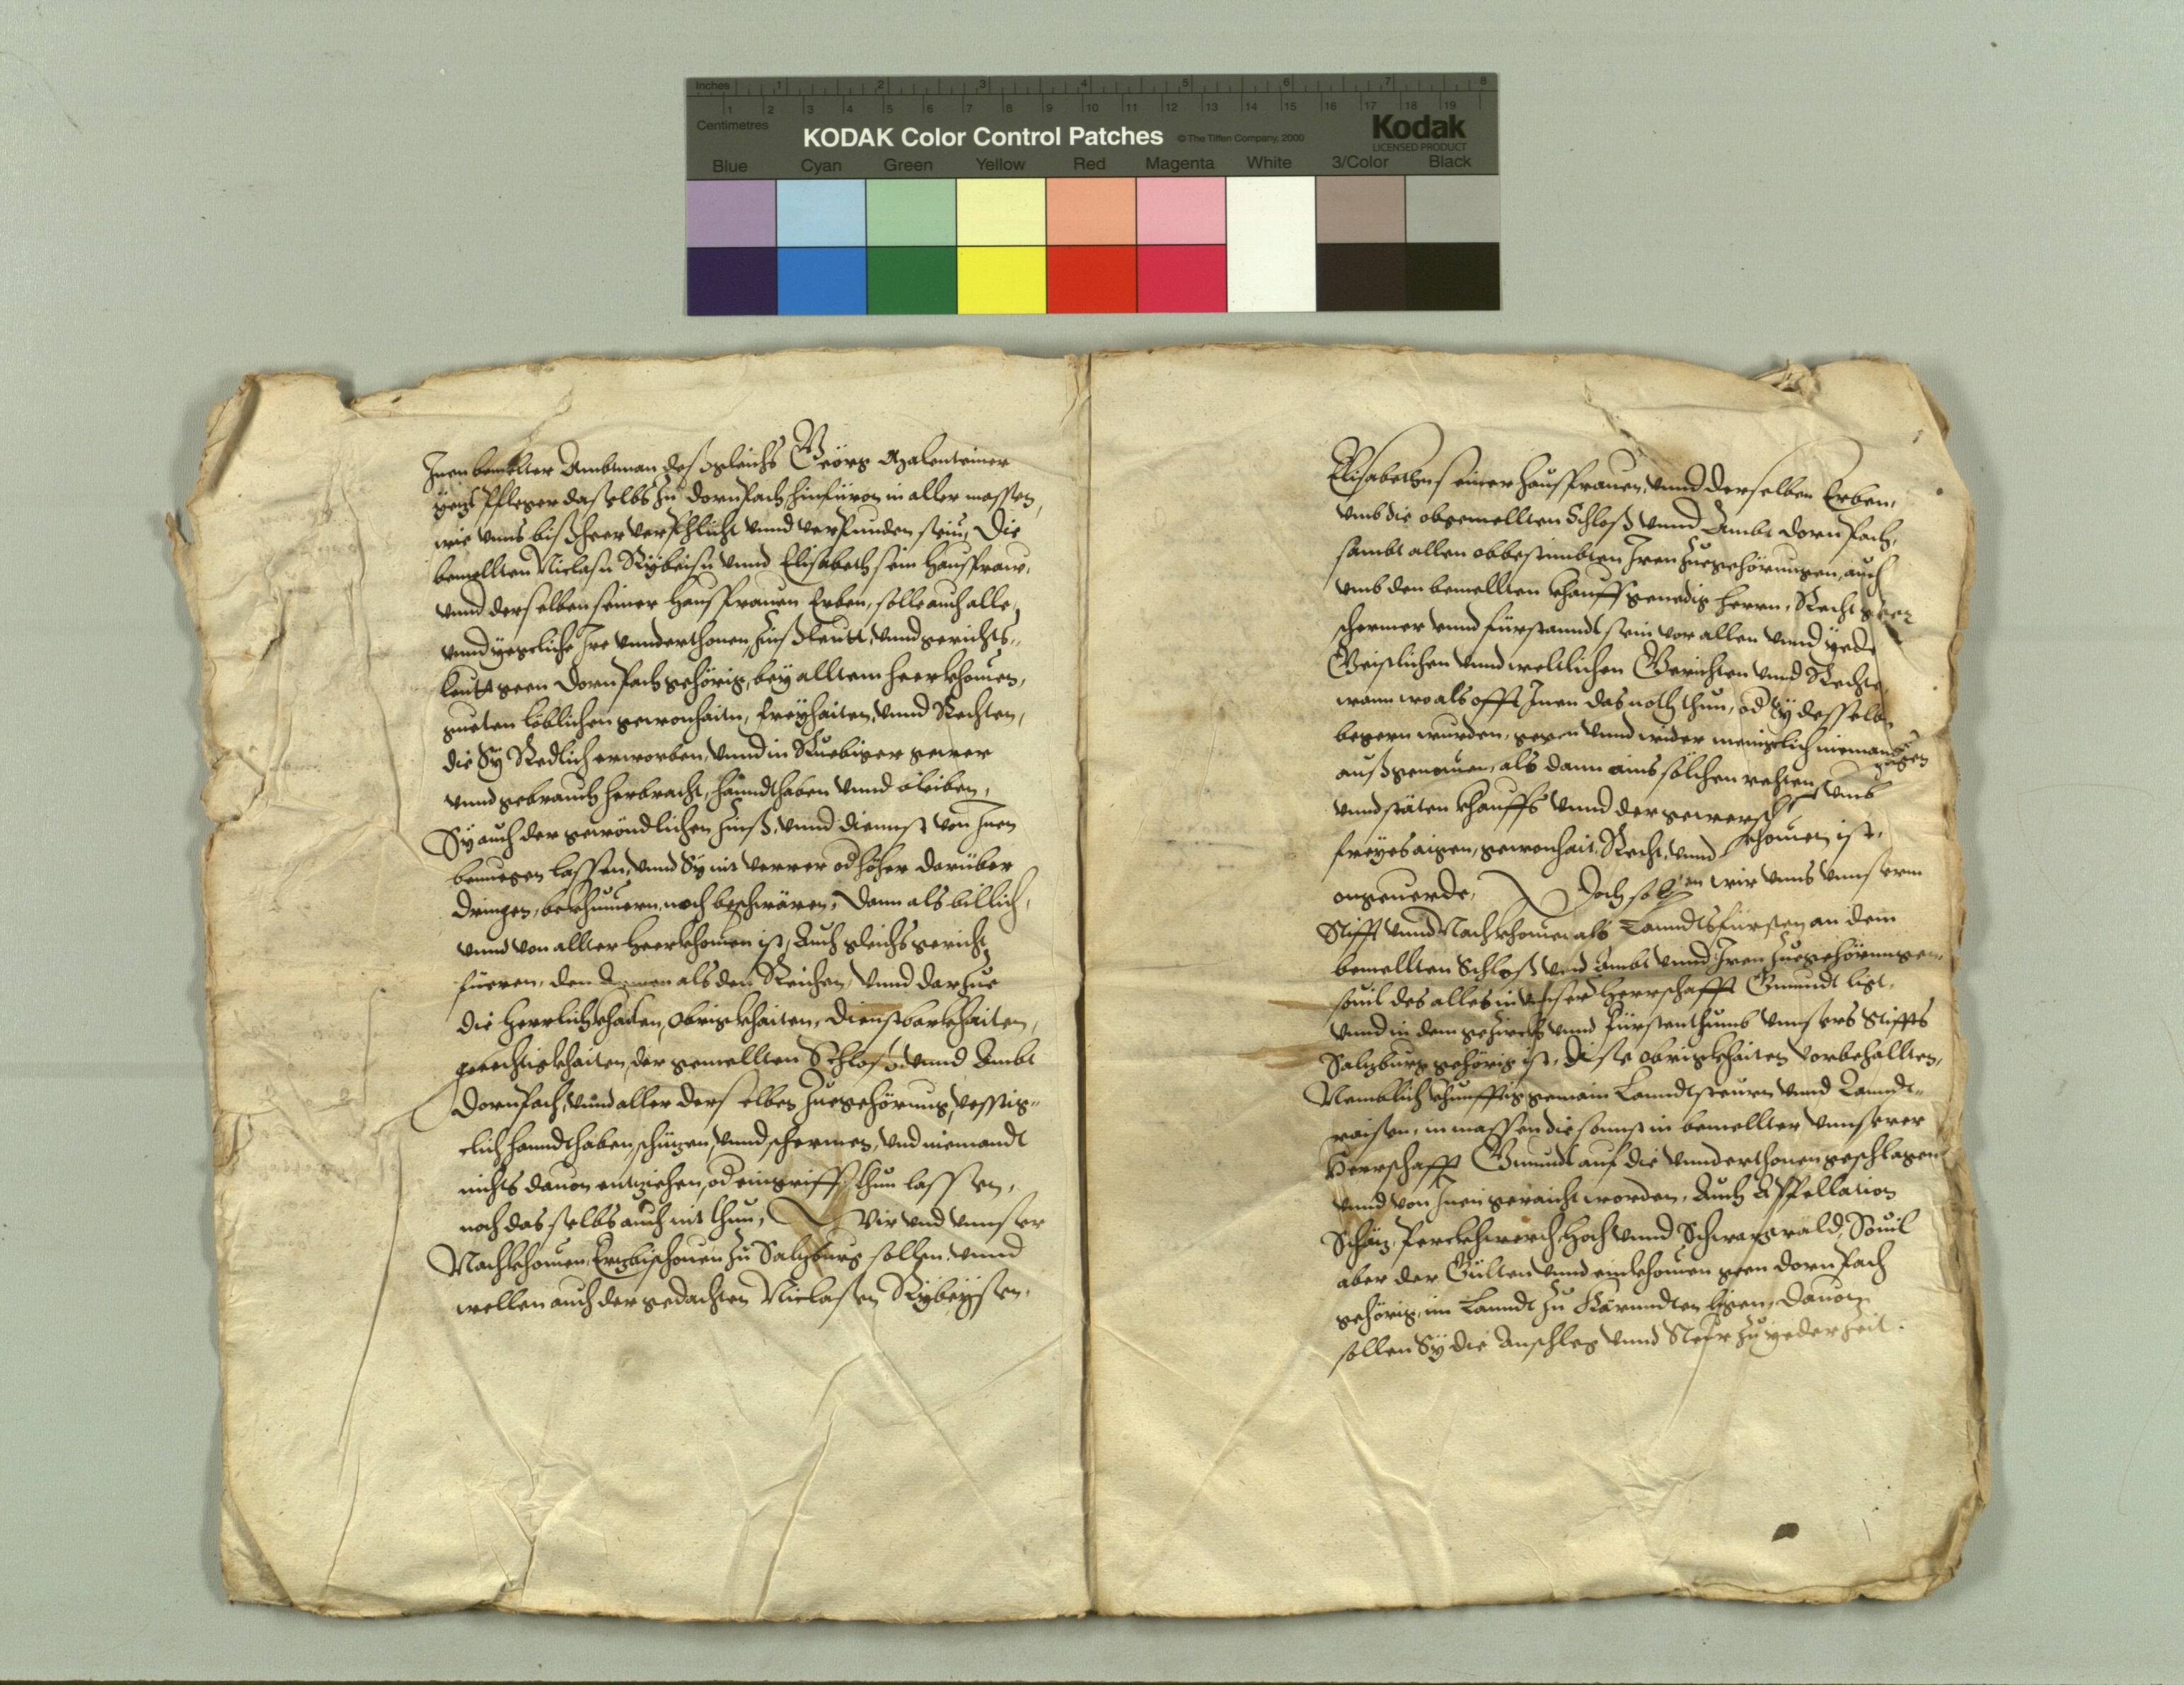 Inches 1 2 3 4 5 6 7 8
1 2 3 4 5 6 7 8 9 10 11 12 13 14 15 16 17 18 19
Centimetres
KODAK Color Control Patches © The Tiffen Company, 2000 Kodak
LICENSED PRODUCT
Blue Cyan Green Yellow Red Magenta White 3/Color Black
Inen bemelter Ambtman desgleichs Geörg
Pfleger daselbs zu Dornpach, hinfüron in aller massen,
wie vnns bißheer verphlicht vnnd verpunden sein, Die
bemellten Niclasn Rybeisn vnnd Elisabeth sein hausfraw,
vnnd derselben seiner hausfrauen Erben, solle auch alle
vnnd yegcliche Ire vnnderthonen, Zinßleutt, vnnd gerichts„
leutt geen Dornpach gehörig, bey alltem heerkhomen,
gueten löblichen gewonhaitn, freyhaiten, vnnd Rechten,
die Sy Redlich erworben, vnnd in Ruebiger gewer
vnnd gebrauch herbracht, hanndthaben vnnd bleiben,
Sy auch der gewöndlichen Zinß, vnnd diennst von Inen
benuegen lassen, vnnd Sy nit verrer od höher darüber
dringen, bekhumern, noch beschwären, Dann als billich,
vnnd von allter heerkhomen ist, Auch gleichs gericht
füeren, den Armen als den Reichen, Vnnd darzue
die herrlichkhaiten, Obrigkhaiten, Dienstbarkhaiten,
gerechtigkhaiten, der gemellten Schloß vnnd Ambt
Dornpach, vnnd aller derselben Zuegehörung, vesstig„
clich hanndthaben, schüzen, vnnd schermen, vnd niemandt
nichts dauon entziehen, od eingriff thun lassen,
noch das selbs auch nit thun, Wir vnd vnnser
Nachkhomen, Erzbischouen zu Salzburg sollen vnnd
wellen auch der gedachten Niclasen Rybeysen,
Elisabethn seiner hausfrauen, vnnd derselben Erben,
vmb die obgemellten Schloß vnnd Ambt Dornpach,
sambt allen obbestimbten Iren Zuegehörungen, auch
vmb den bemellten khauff genedig herrn, Recht
schermer vnnd fürstanndt sein vor allen vnnd
Geistlichen vnnd weltlichen Gerichten vnnd Rechte
wann wo als offt Inen das noth thun, od Sy desselbn
begern wurden, gegen vnnd wider menigclich nieman
außgenomen, als dann ains solchen rechten
vnnd stäten khauffs vnnd der gewersch vmb
freyes aigen, gewonhait, Recht, vnnd khomen ist,
ongeuerde, Doch sollen wir vnns vnnserm
Stifft vnnd Nachkhomen als Lanndtsfürsten an dem
bemellten Schloß vnnd Ambt vnnd Iren Zuegehörungen,
souil des alles in vnser herrschafft Gmundt ligt,
vnnd in dem gezirckh vnnd Fürstenthumb vnnsers Stiffts
Salzburg gehörig ist, Dise obrigkhaiten vorbehallten,
Nemblich khunfftig gemain Lanndtsteuren vnnd Lanndt„
raisen, inmassen die sonnst in bemellter vnnserer
Herrschafft Gmundt auf die vnnderthonen geschlagen
vnnd von Inen geraicht worden, Auch Appellation
Schäz, Perckhwerch, Hoch vnnd Schwarzwäld, Souil
aber der Gülten vnnd einkhomen geen Dornpach
gehörig, im Lanndt zu Kärnndten ligen, Dauon
sollen Sy die Anschleg vnnd Steur zu yeder Zeit